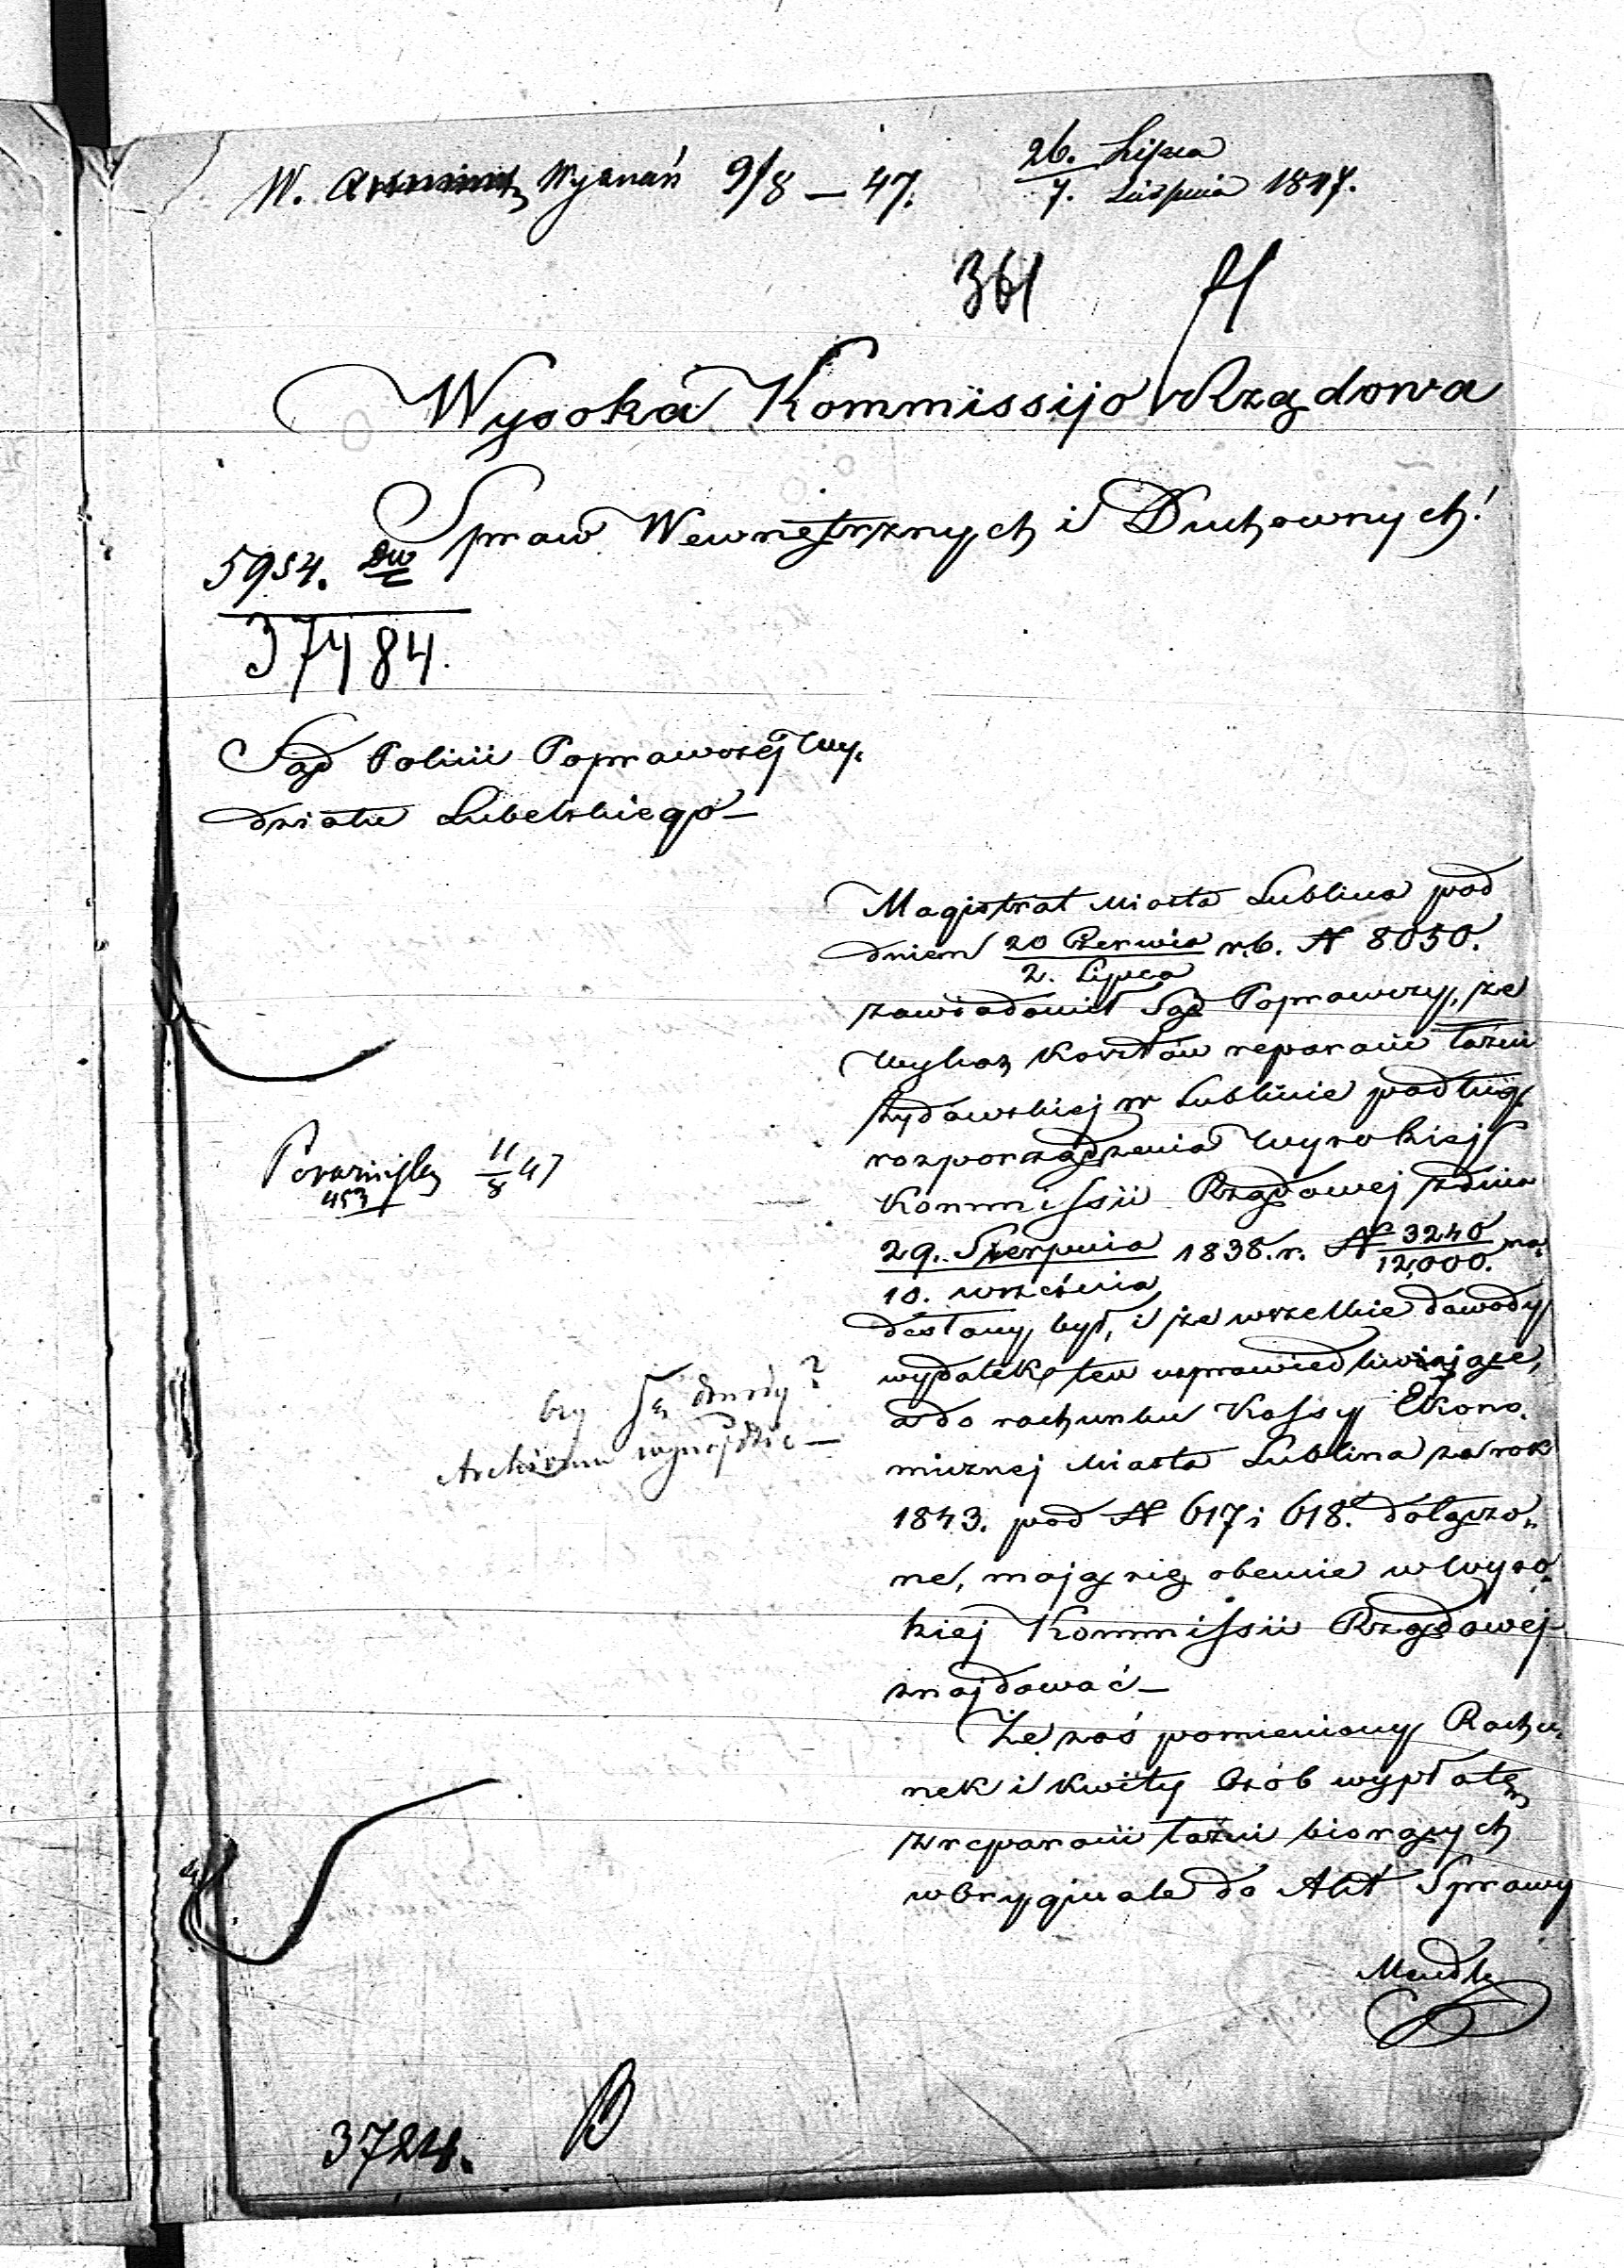 W. Wyznań 9/8 – 47.
26. Lipca
7. Sierpnia 1847.
361
Wysoka Kommissijo Rządowa
Spraw Wewnętrznych i Duchownych!
5954. DW
37484.
Sąd Policii Poprawczej Wy-
działu Lubelskiego –
Magistrat Miasta Lublina pod
dniem 20 Czerwca r.b. N 8050.
2. Lipca
zawiadomił Sąd Poprawczy, że
Wykaz kosztów reparacii łaźni
żydowskiej w Lublinie podług
rozporządzenia Wysokiej
Kommissii Rządowej z dnia
29. Sierpnia 1838. r. N 3240 na-
10. września 12,000.
desłany był, i że wszelkie dowody
wydatek ten usprawiedliwiające,
a do rachunku Kassy Ekono-
micznej Miasta Lublina za rok
1843. pod N 617 i 618. dołączo-
ne, mają się obecnie w Wyso-
kiej Kommissii Rządowej
znajdować –
Że zaś pomieniony Rachu-
nek i kwity Osób wypłatę
z reparacii łaźni biorących
w Oryginale do Akt Sprawy
11/8 47
453
czy są dowody?
Archiwum wynajdzie –
3724.